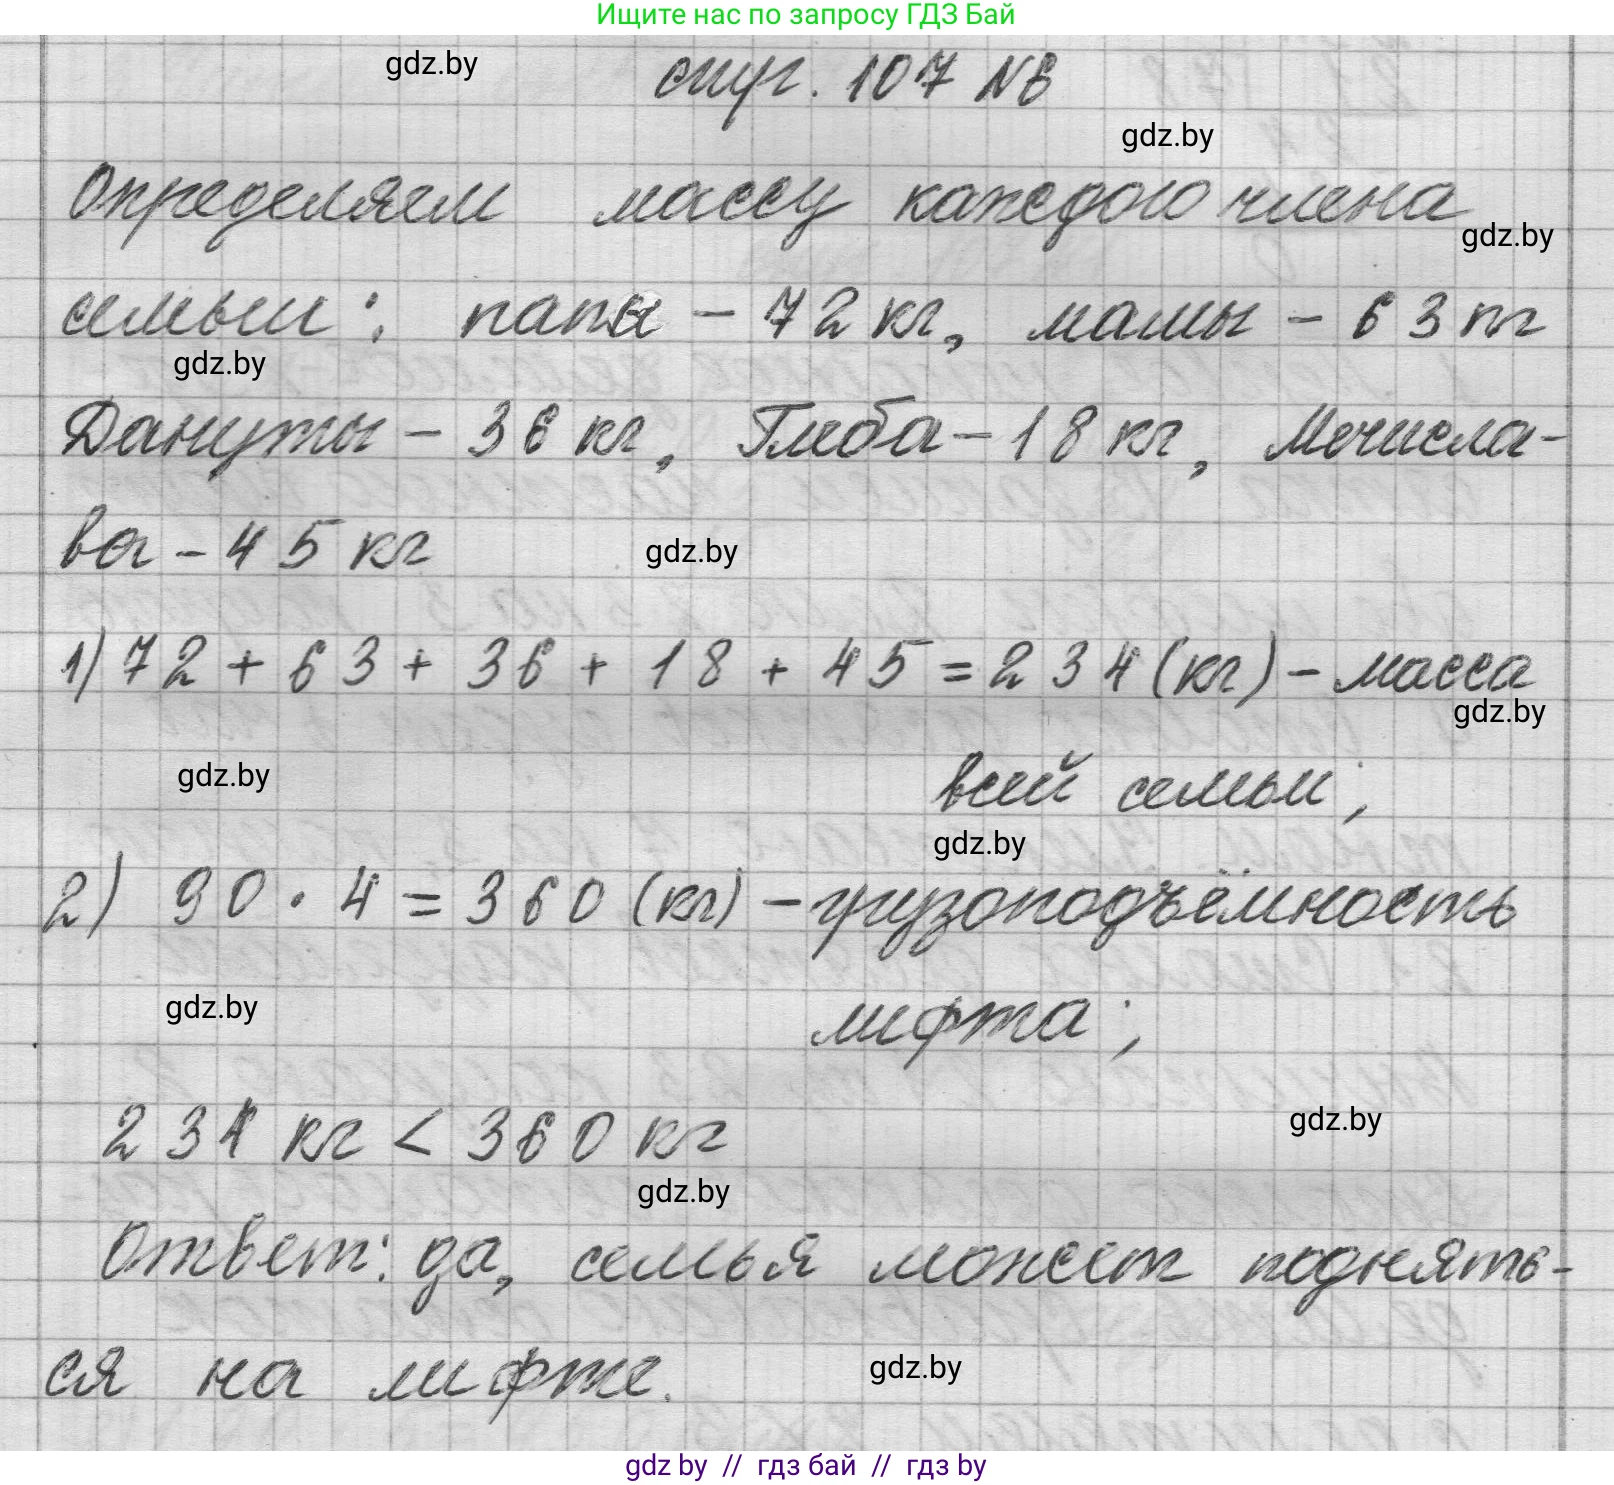 Ищите нас по запросу ГДЗ Бай
gdz.by
стр. 107 №6
gdz.by
Определяем массу каждого члена
gdz.by
семьи: папы – 72 кг, мамы – 63 кг
gdz.by
Дануты – 36 кг, Глеба – 18 кг, Мечисла-
ва – 45 кг
gdz.by
1) 72 + 63 + 36 + 18 + 45 = 234 (кг) – масса
gdz.by
gdz.by
всей семьи;
gdz.by
2) 90 · 4 = 360 (кг) – грузоподъёмность
gdz.by
лифта;
gdz.by
234 кг < 360 кг
gdz.by
Ответ: да, семья может поднять-
ся на лифте.
gdz.by
gdz by // гдз бай // гдз by